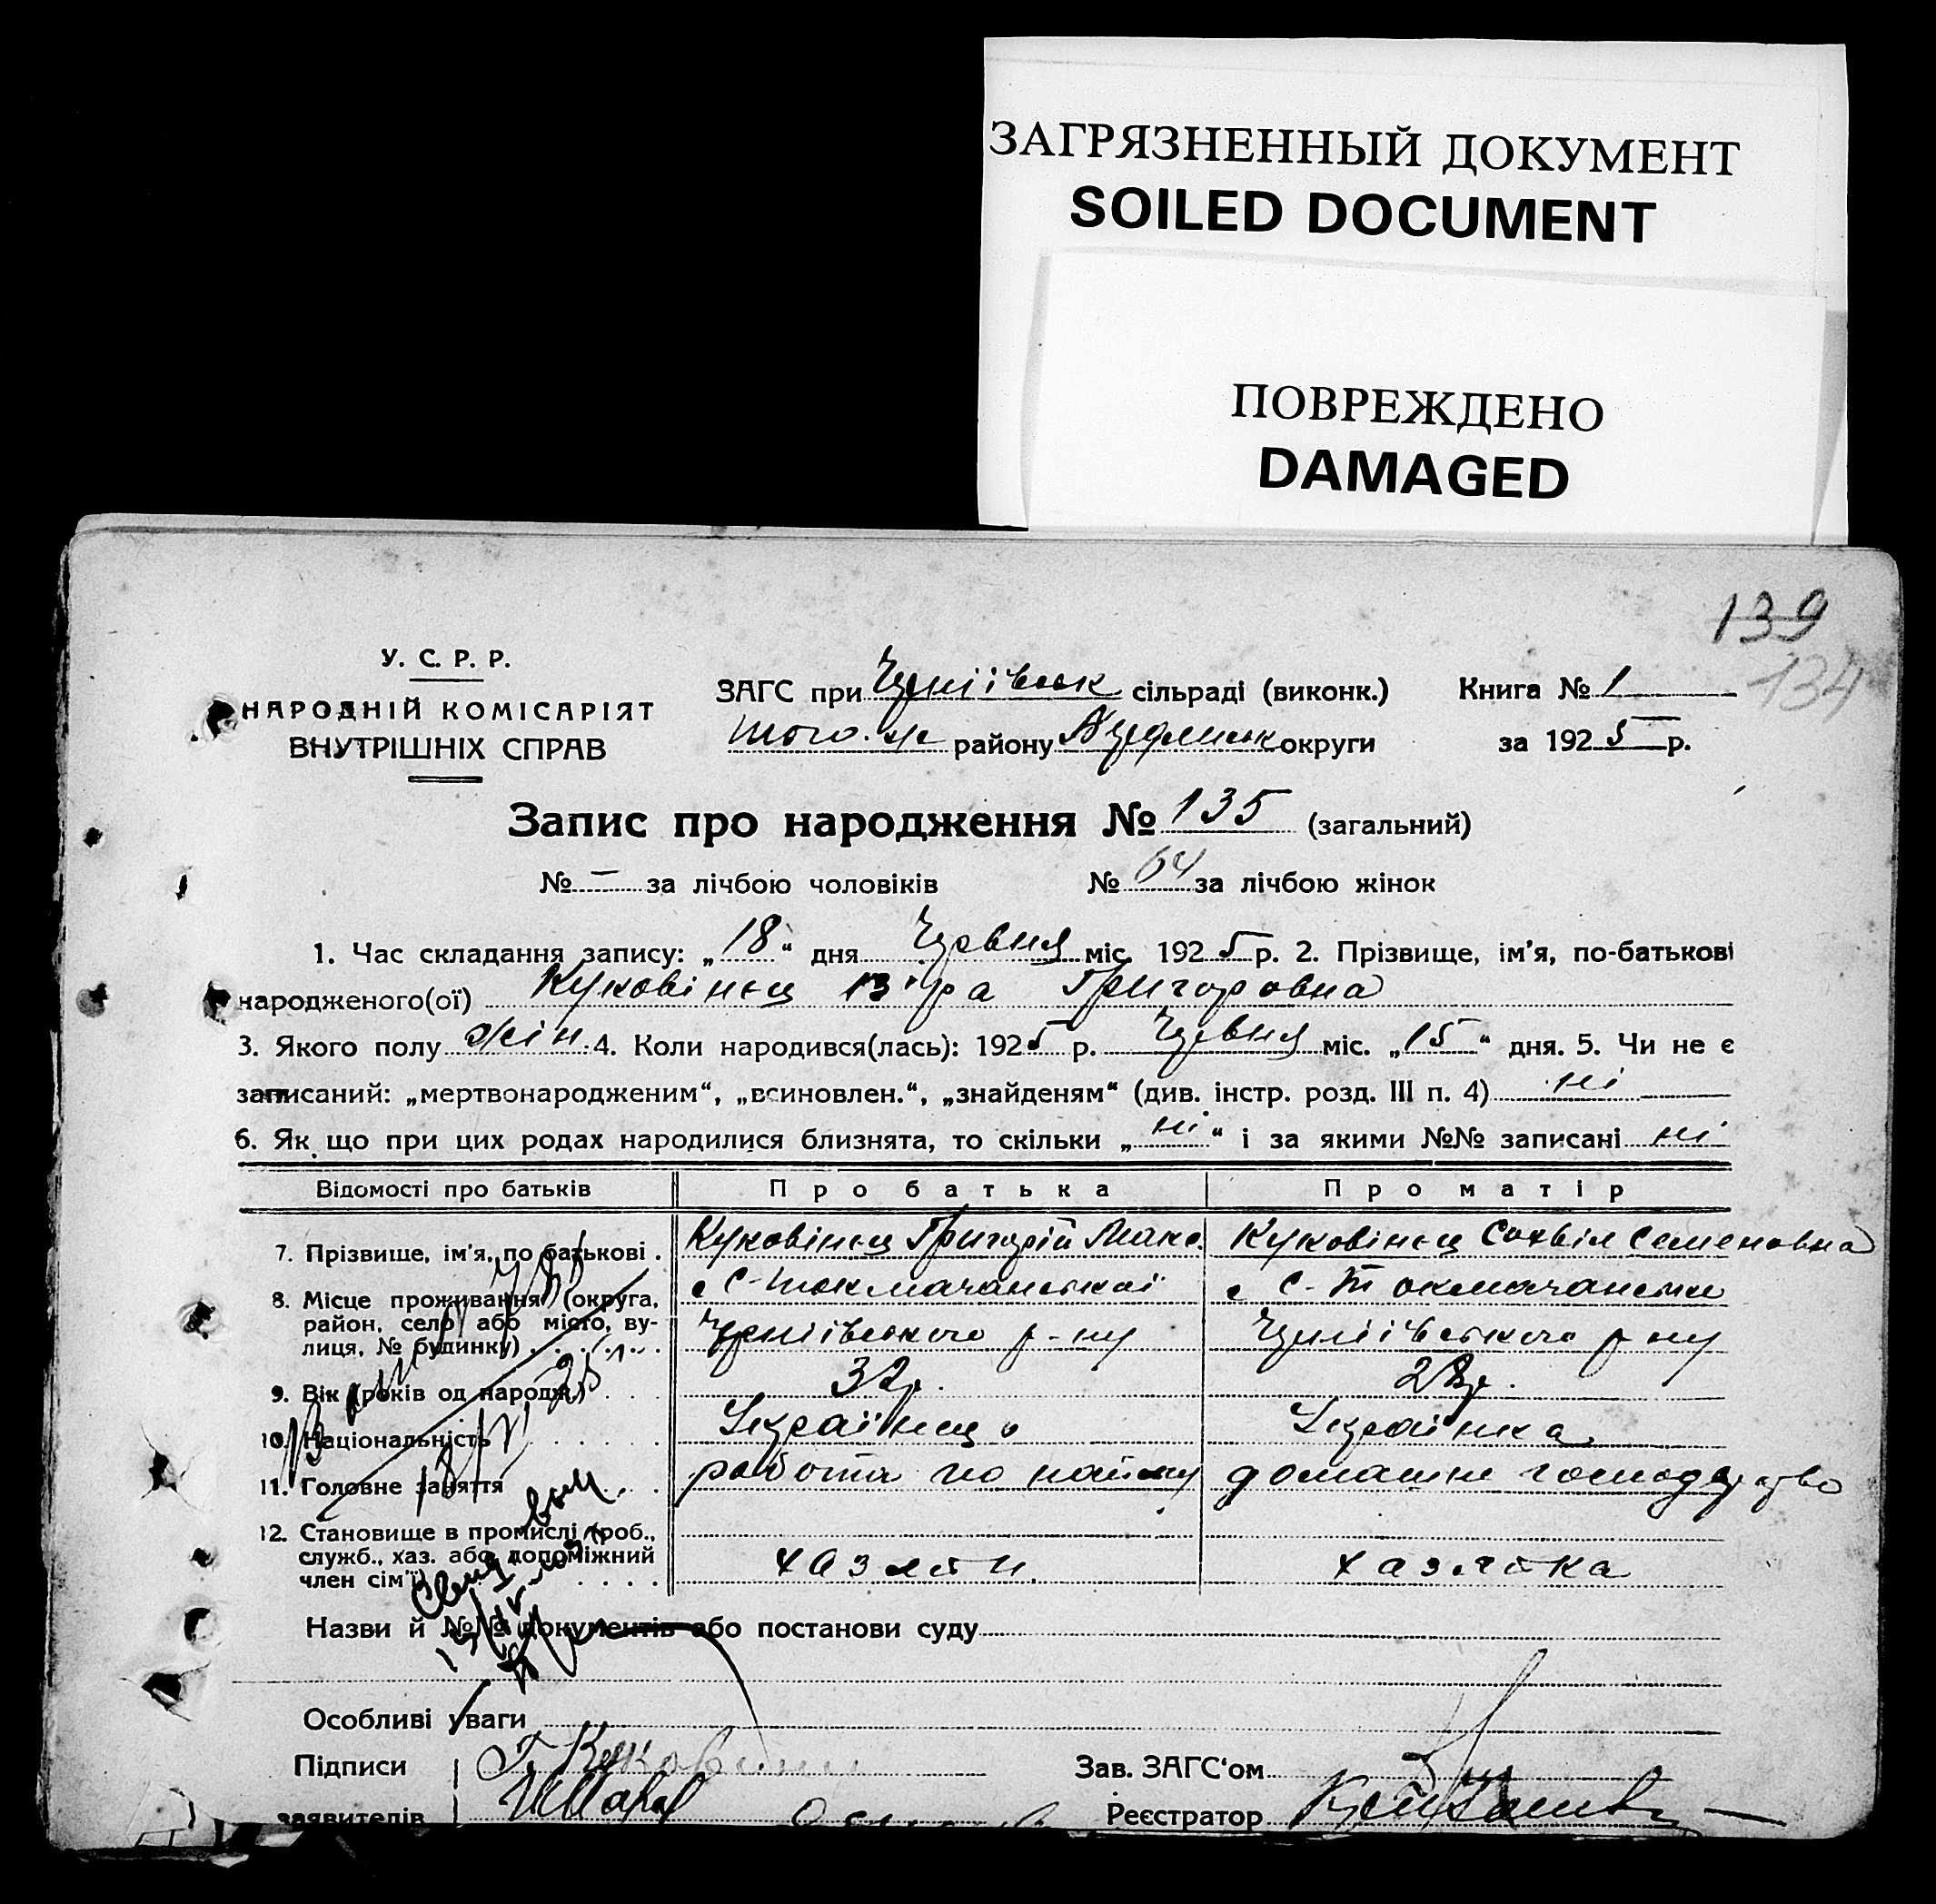 ЗАГРЯЗНЕННЫЙ ДОКУМЕНТ
SOILED DOCUMENT
ПОВРЕЖДЕНО
DAMAGED
139
134
У. С. Р. Р.
НАРОДНІЙ КОМІСАРІЯТ
ВНУТРІШНІХ СПРАВ
ЗАГС при сільраді (виконк.) Книга № 1
того-же району округи за 1925 р.
Запис про народження № 135 (загальний)
№ – за лічбою чоловіків № 64 за лічбою жінок
1. Час складання запису: „18“ дня Червня міс. 1925 р. 2. Прізвище, ім'я, по-батькові
народженого(ої) Куковінец Віра Григоровна
3. Якого полу жін. 4. Коли народився(лась): 1925 р. Червня міс. „15“ дня. 5. Чи не є
записаний: „мертвонародженим“, „всиновлен.“, „знайденям“ (див. інстр. розд. III п. 4) ні
6. Як що при цих родах народилися близнята, то скільки „ні“ і за якими №№ записані ні
Відомості про батьків Про батька Про матір
7. Прізвище, ім'я, по батькові . Куковінец Григорій Куковінец Семеновна
8. Місце проживання (округа,
район, село або місто, ву-
лиця, № будинку) р-ну р-ну
9. Вік (років од народж.) 32 р. 28 р.
10. Національність Українец Українка
11. Головне заняття работа по найму домашне господарство
12. Становище в промислі (роб.,
служб., хаз. або допоміжний
член сім'ї) хазяїн. хазяйка
Назви й №№ документів або постанови суду
Особливі уваги
Підписи Г. Зав. ЗАГС'ом
заявителів Реєстратор